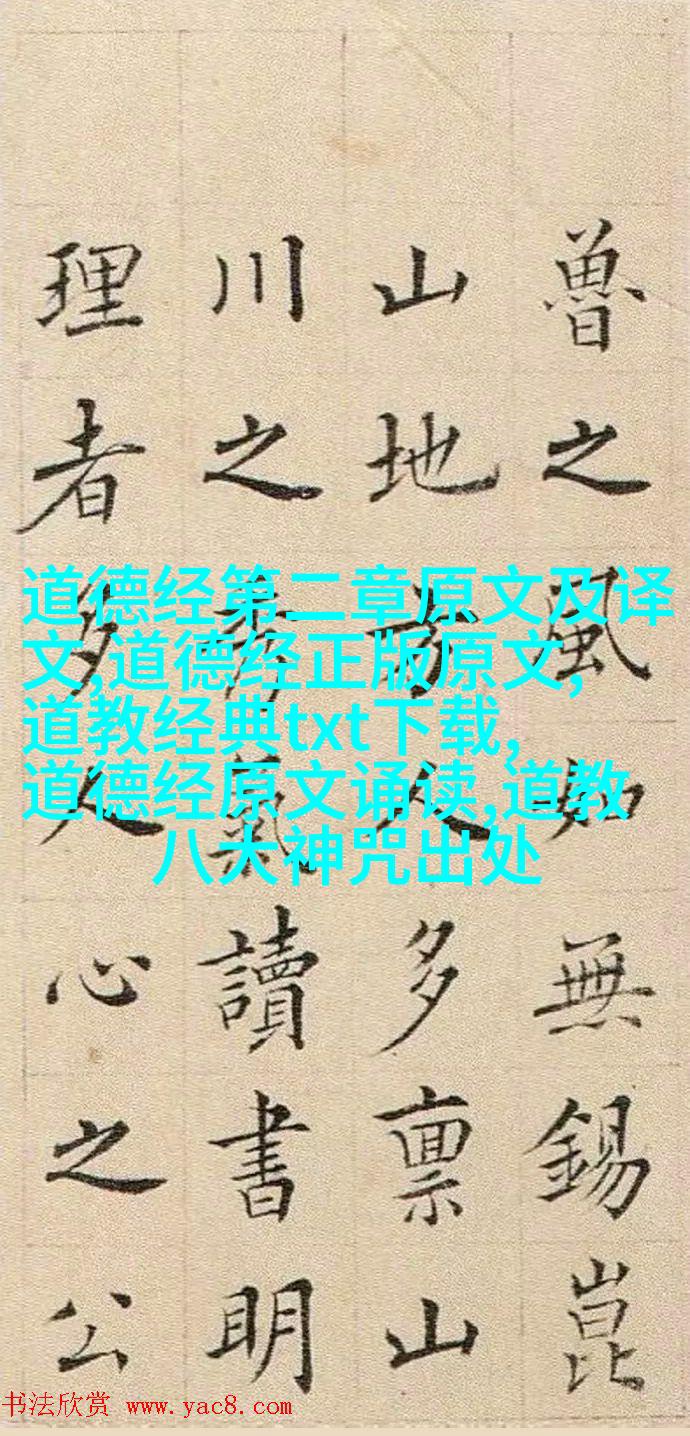 魯之風如無錫崑
山地方人多禀山
川之秀氣讀書明
理者多人心之公
道德经第二章原文及译
文,道德经正版原文,
道教经典txt下载,
道德经原文诵读,道教
八大神咒出处
书法欣赏 www.yac8.com